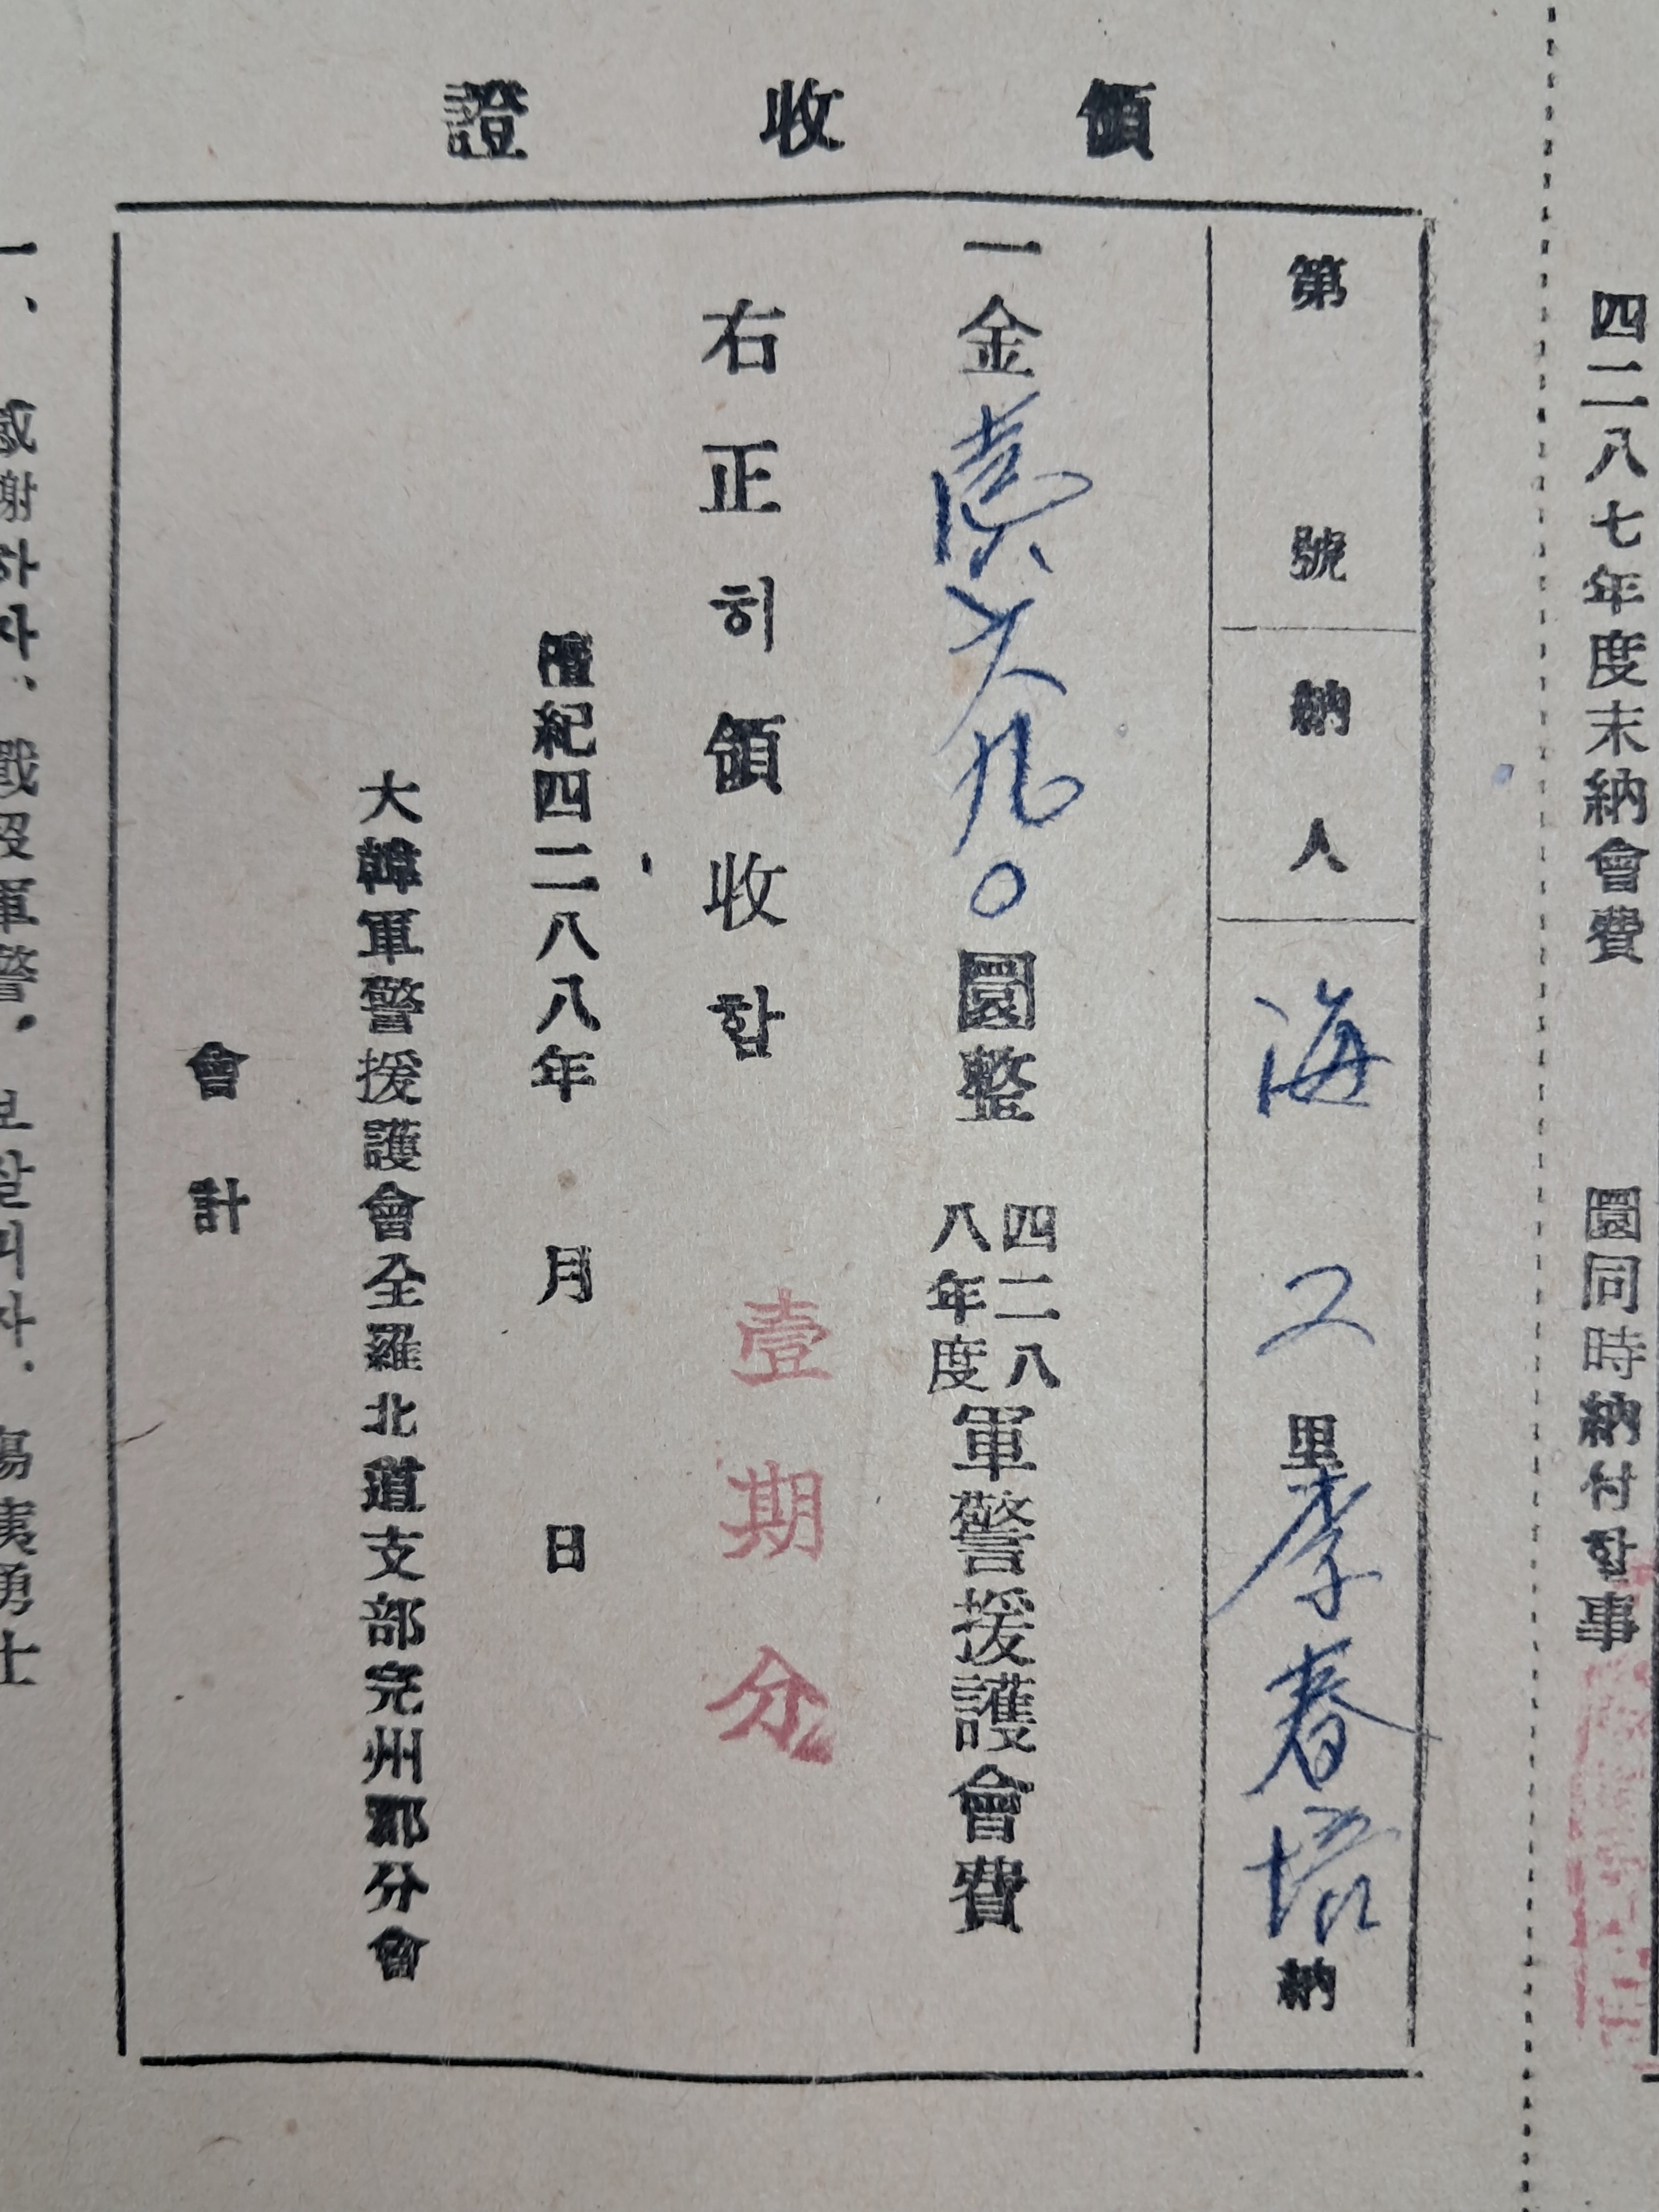 四二八七年度末納會費 圜同時納付함事
領收證
第 號 納人 海 2 里 李春培 納
一金 六九〇圜整 四二八八年度軍警援護會費
右正히領收함 壹期分
檀紀四二八八年 月 日
大韓軍警援護會全羅北道支部完州郡分會
會計
一、感謝하자. 戰歿軍警. 보살피자. 傷痍勇士